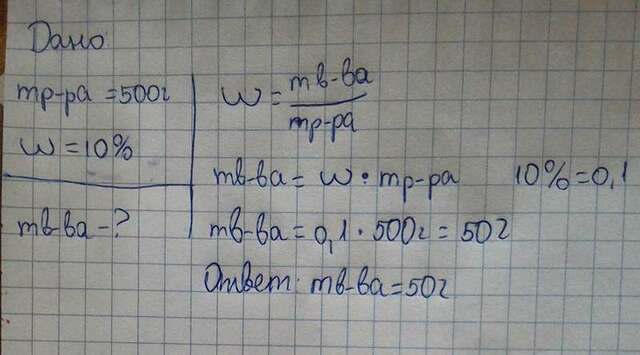 Дано
mр-ра = 500г
w = 10%
mв-ва - ?
w = mв-ва
mр-ра
mв-ва = w • mр-ра 10% = 0,1
mв-ва = 0,1 • 500г = 50г
Ответ: mв-ва = 50г